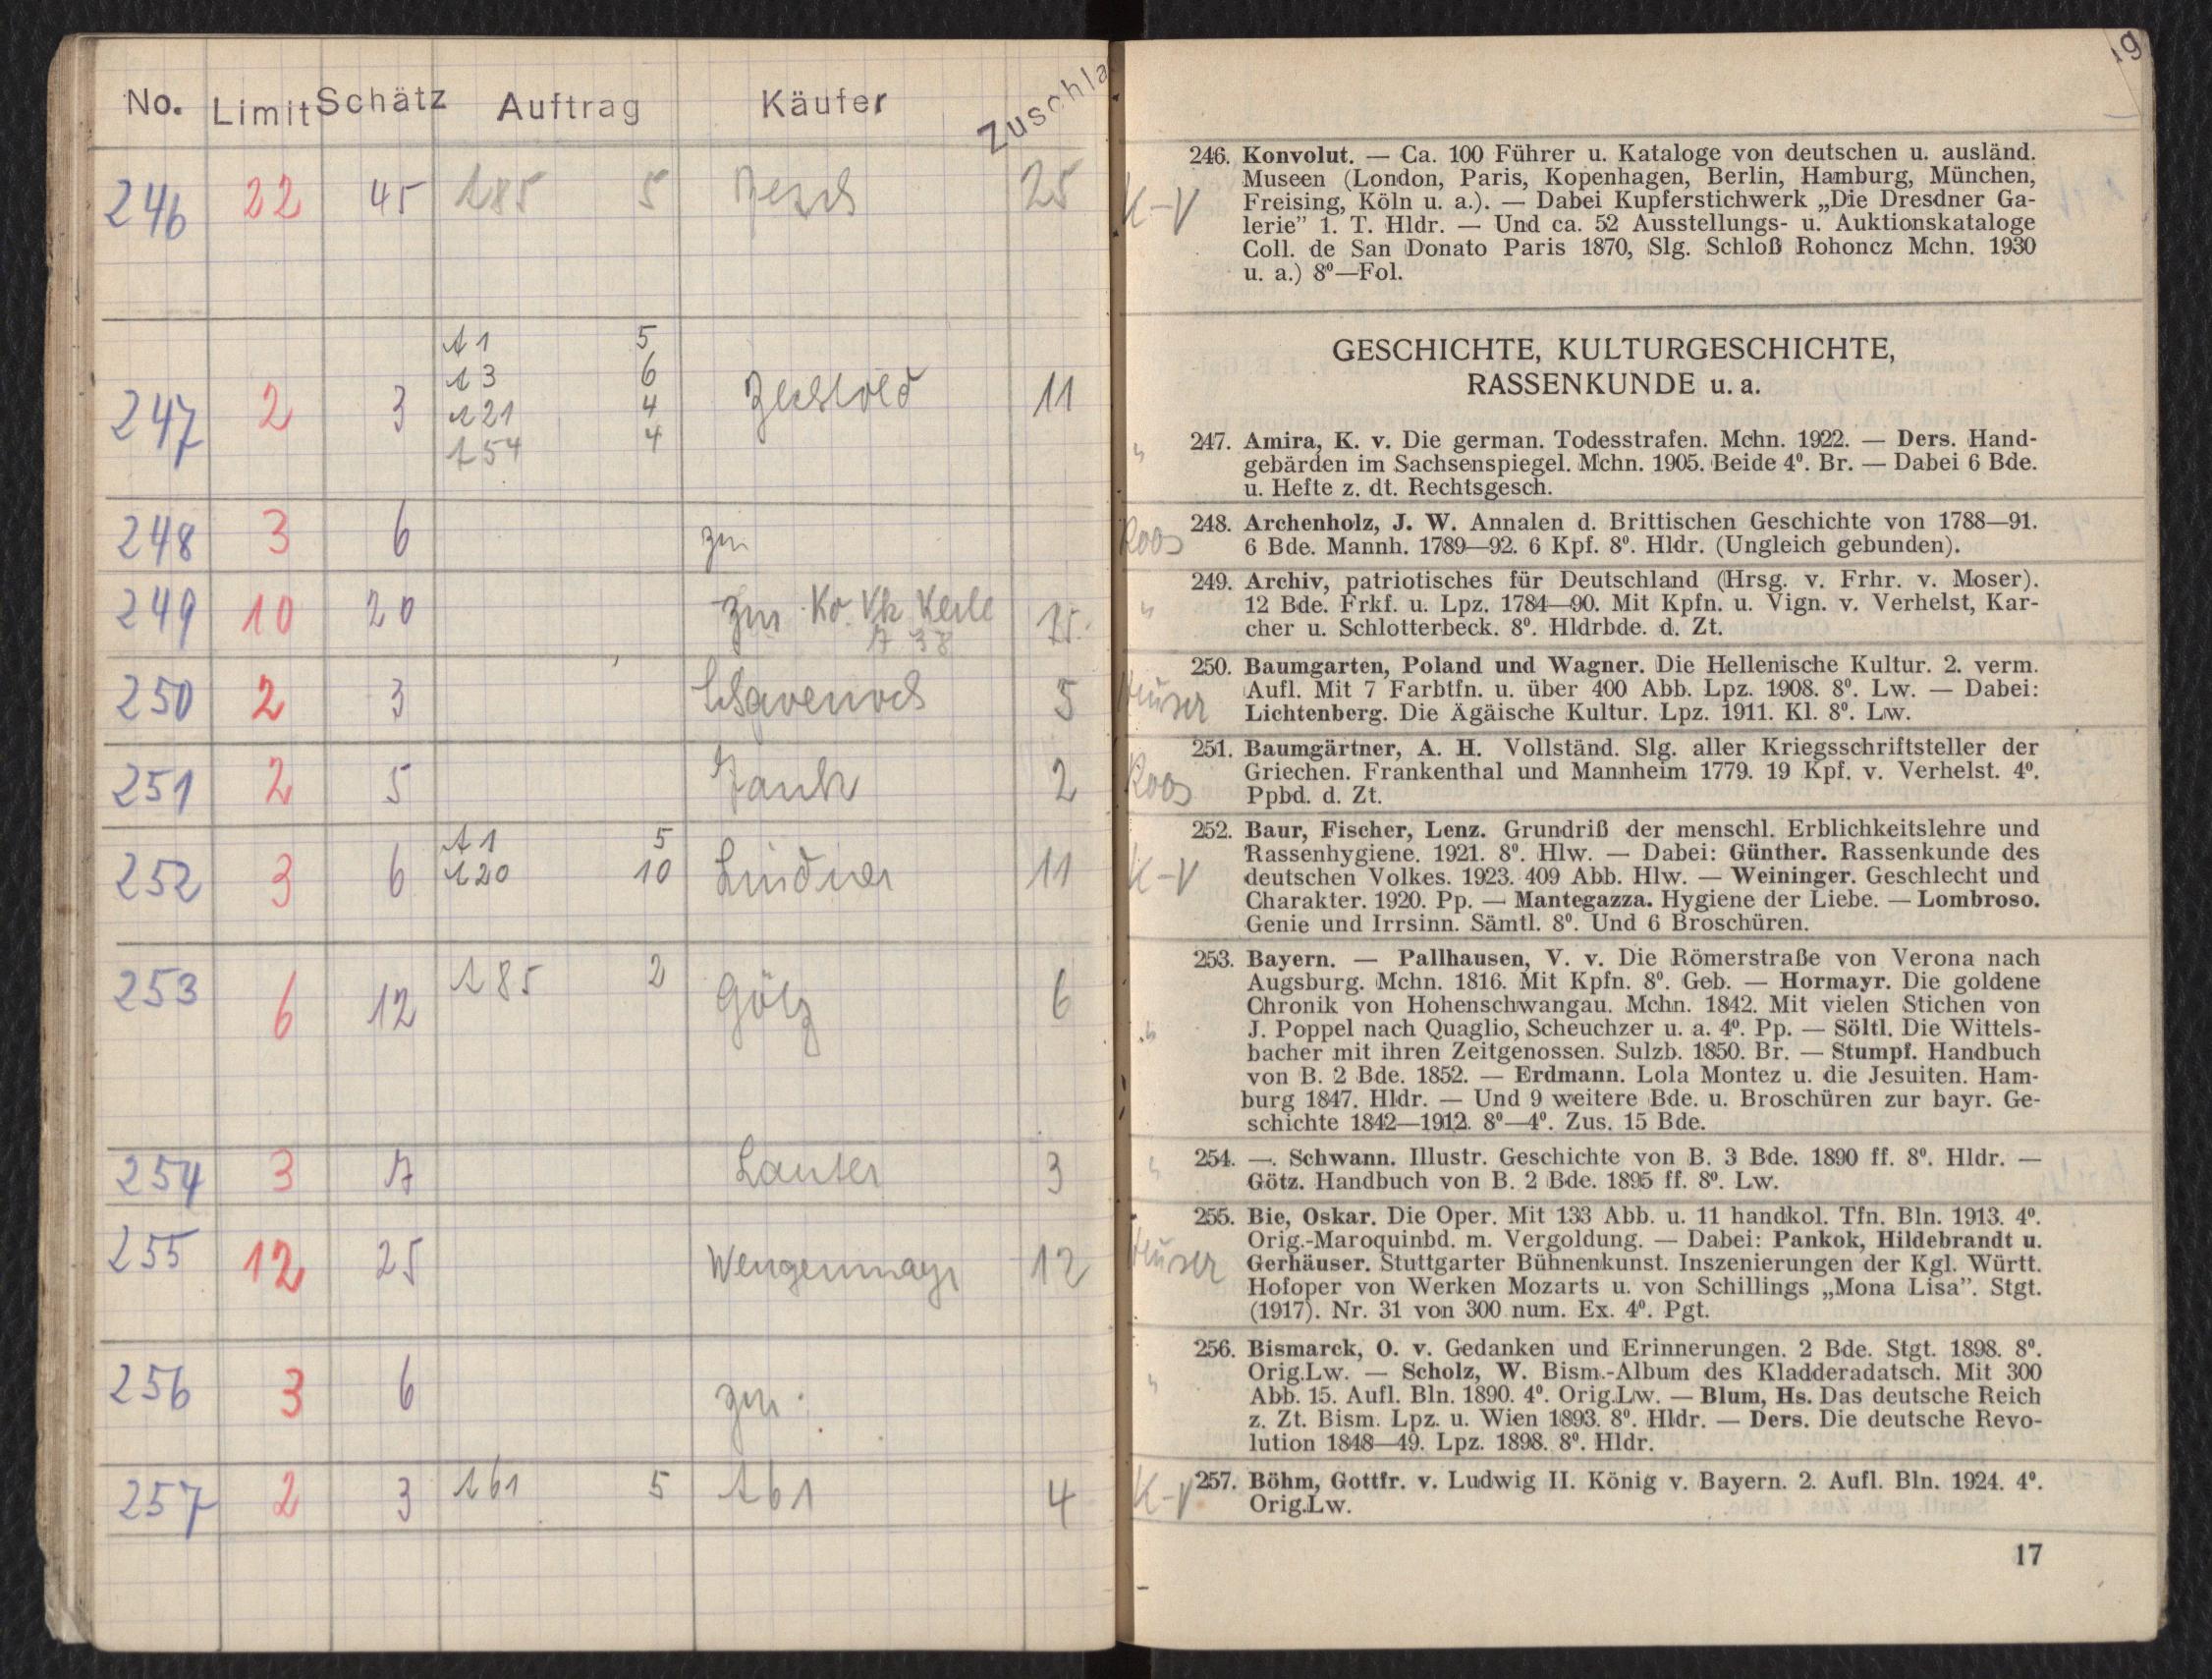 No. Limit Schätz Auftrag Käufer Zuschla
246 22 45 185 5 25
A 1 5
13 6
247 2 3 121 4 11
154 4
248 3 6 zur
249 10 20 zur Kv. Vk
38
250 2 3 5
251 2 5 2
A 1 5
252 3 6 120 10 Lindner 11
253 6 12 185 2 Götz 6
254 3 7 Lauter 3
255 12 25 Wengenmayr 12
256 3 6 zur
257 2 3 161 5 161 4
19
K-V
246. Konvolut. — Ca. 100 Führer u. Kataloge von deutschen u. ausländ.
Museen (London, Paris, Kopenhagen, Berlin, Hamburg, München,
Freising, Köln u. a.). — Dabei Kupferstichwerk „Die Dresdner Ga-
lerie” 1. T. Hldr. — Und ca. 52 Ausstellungs- u. Auktionskataloge
Coll. de San Donato Paris 1870, Slg. Schloß Rohoncz Mchn. 1930
u. a.) 8⁰—Fol.
GESCHICHTE, KULTURGESCHICHTE,
RASSENKUNDE u. a.
"
247. Amira, K. v. Die german. Todesstrafen. Mchn. 1922. — Ders. Hand-
gebärden im Sachsenspiegel. Mchn. 1905. Beide 4⁰. Br. — Dabei 6 Bde.
u. Hefte z. dt. Rechtsgesch.
Roos
248. Archenholz, J. W. Annalen d. Brittischen Geschichte von 1788—91.
6 Bde. Mannh. 1789—92. 6 Kpf. 8⁰. Hldr. (Ungleich gebunden).
"
249. Archiv, patriotisches für Deutschland (Hrsg. v. Frhr. v. Moser).
12 Bde. Frkf. u. Lpz. 1784—90. Mit Kpfn. u. Vign. v. Verhelst, Kar-
cher u. Schlotterbeck. 8⁰. Hldrbde. d. Zt.
250. Baumgarten, Poland und Wagner. Die Hellenische Kultur. 2. verm.
Aufl. Mit 7 Farbtfn. u. über 400 Abb. Lpz. 1908. 8⁰. Lw. — Dabei:
Lichtenberg. Die Ägäische Kultur. Lpz. 1911. Kl. 8⁰. Lw.
Roos
251. Baumgärtner, A. H. Vollständ. Slg. aller Kriegsschriftsteller der
Griechen. Frankenthal und Mannheim 1779. 19 Kpf. v. Verhelst. 4⁰.
Ppbd. d. Zt.
K-V
252. Baur, Fischer, Lenz. Grundriß der menschl. Erblichkeitslehre und
Rassenhygiene. 1921. 8⁰. Hlw. — Dabei: Günther. Rassenkunde des
deutschen Volkes. 1923. 409 Abb. Hlw. — Weininger. Geschlecht und
Charakter. 1920. Pp. — Mantegazza. Hygiene der Liebe. — Lombroso.
Genie und Irrsinn. Sämtl. 8⁰. Und 6 Broschüren.
"
253. Bayern. — Pallhausen, V. v. Die Römerstraße von Verona nach
Augsburg. Mchn. 1816. Mit Kpfn. 8⁰. Geb. — Hormayr. Die goldene
Chronik von Hohenschwangau. Mchn. 1842. Mit vielen Stichen von
J. Poppel nach Quaglio, Scheuchzer u. a. 4⁰. Pp. — Söltl. Die Wittels-
bacher mit ihren Zeitgenossen. Sulzb. 1850. Br. — Stumpf. Handbuch
von B. 2 Bde. 1852. — Erdmann. Lola Montez u. die Jesuiten. Ham-
burg 1847. Hldr. — Und 9 weitere Bde. u. Broschüren zur bayr. Ge-
schichte 1842—1912. 8⁰—4⁰. Zus. 15 Bde.
"
254. —. Schwann. Illustr. Geschichte von B. 3 Bde. 1890 ff. 8⁰. Hldr. —
Götz. Handbuch von B. 2 Bde. 1895 ff. 8⁰. Lw.
255. Bie, Oskar. Die Oper. Mit 133 Abb. u. 11 handkol. Tfn. Bln. 1913. 4⁰.
Orig.-Maroquinbd. m. Vergoldung. — Dabei: Pankok, Hildebrandt u.
Gerhäuser. Stuttgarter Bühnenkunst. Inszenierungen der Kgl. Württ.
Hofoper von Werken Mozarts u. von Schillings „Mona Lisa”. Stgt.
(1917). Nr. 31 von 300 num. Ex. 4⁰. Pgt.
"
256. Bismarck, O. v. Gedanken und Erinnerungen. 2 Bde. Stgt. 1898. 8⁰.
Orig.Lw. — Scholz, W. Bism.-Album des Kladderadatsch. Mit 300
Abb. 15. Aufl. Bln. 1890. 4⁰. Orig.Lw. — Blum, Hs. Das deutsche Reich
z. Zt. Bism. Lpz. u. Wien 1893. 8⁰. Hldr. — Ders. Die deutsche Revo-
lution 1848—49. Lpz. 1898. 8⁰. Hldr.
K-V
257. Böhm, Gottfr. v. Ludwig II. König v. Bayern. 2. Aufl. Bln. 1924. 4⁰.
Orig.Lw.
17